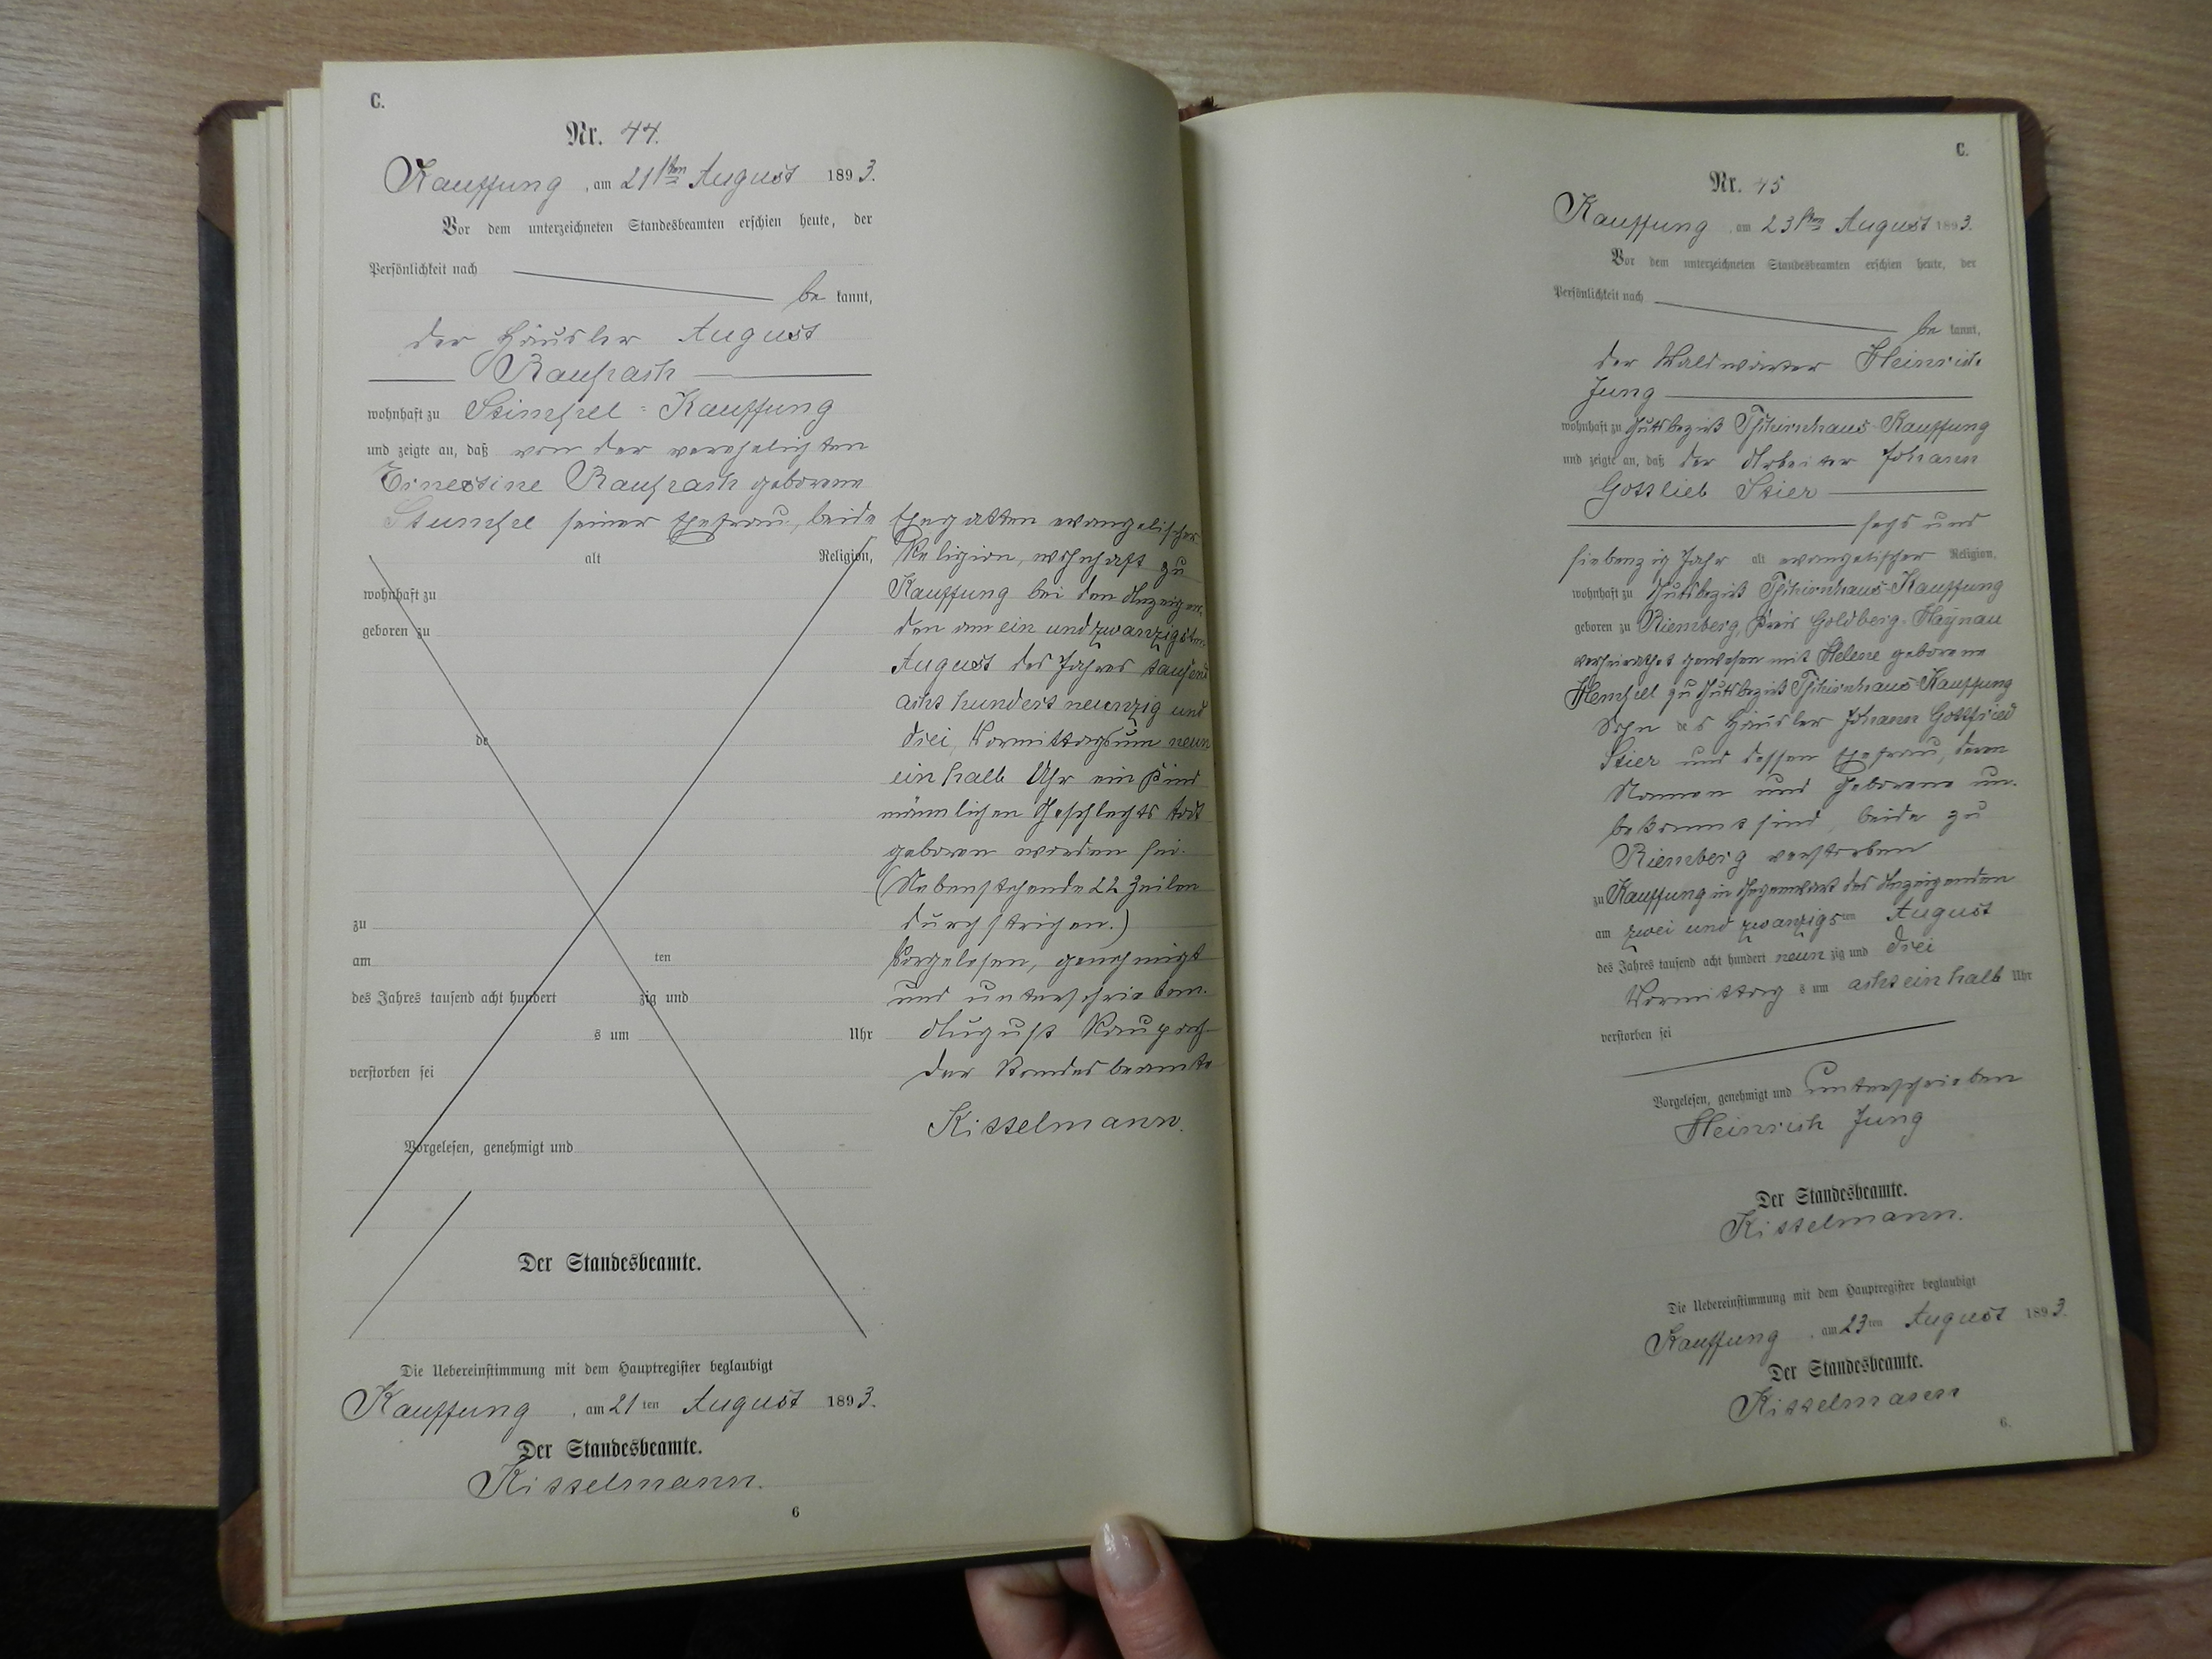 C.
Nr. 44.
Kauffung, am 21sten August 1893.
Vor dem unterzeichneten Standesbeamten erschien heute, der
Persönlichkeit nach
be kannt,
der Häusler August
Raupach
wohnhaft zu Stimpel-Kauffung
und zeigte an, daß von der verehelichten
Ernestine Raupach geborene
Stumpel seiner Ehefrau, beide
alt Religion,
wohnhaft zu
geboren zu
de
zu
am ten
des Jahres tausend acht hundert zig und
s um Uhr
verstorben sei
Vorgelesen, genehmigt und
Der Standesbeamte.
Die Uebereinstimmung mit dem Hauptregister beglaubigt
Kauffung, am 21ten August 1893.
Der Standesbeamte.
Kisselmann.
6
Ehegatten evangelischer
Religion, wohnhaft zu
Kauffung bei den Anzeigen-
den am ein und zwanzigsten
August des Jahres tausend
acht hundert neunzig und
drei, Vormittags um neun
ein halb Uhr ein Kind
männlichen Geschlechts todt
geboren worden sei.
(Nebenstehende 22 Zeilen
durchstrichen.)
Vorgelesen, genehmigt
und unterschrieben.
August Raupach
der Standesbeamte
Kisselmann.
C.
Nr. 45
Kauffung, am 23sten August 1893.
Vor dem unterzeichneten Standesbeamten erschien heute, der
Persönlichkeit nach
be kannt,
der Waldwärter Heinrich
Jung
wohnhaft zu Gutsbezirk Tschirnhaus Kauffung
und zeigte an, daß der Arbeiter Johann
Gottlieb Stier
sechs und
siebenzig Jahr alt evangelischer Religion,
wohnhaft zu Gutsbezirk Tschirnhaus-Kauffung
geboren zu Riemberg, Kreis Goldberg-Haynau
verheirathet gewesen mit Helene geborene
Hempel zu Gutsbezirk Tschirnhaus-Kauffung
Sohn des Häusler Johann Gottfried
Stier und dessen Ehefrau, deren
Namen und Geborene un-
bekannt sind, beide zu
Riemberg verstorben
zu Kauffung in Gegenwart des Anzeigenden
am zwei und zwanzigsten August
des Jahres tausend acht hundert neun zig und drei
Vormittag s um acht ein halb Uhr
verstorben sei
Vorgelesen, genehmigt und unterschrieben
Heinrich Jung
Der Standesbeamte.
Kisselmann.
Die Uebereinstimmung mit dem Hauptregister beglaubigt
Kauffung, am 23ten August 1893.
Der Standesbeamte.
Kisselmann
6.